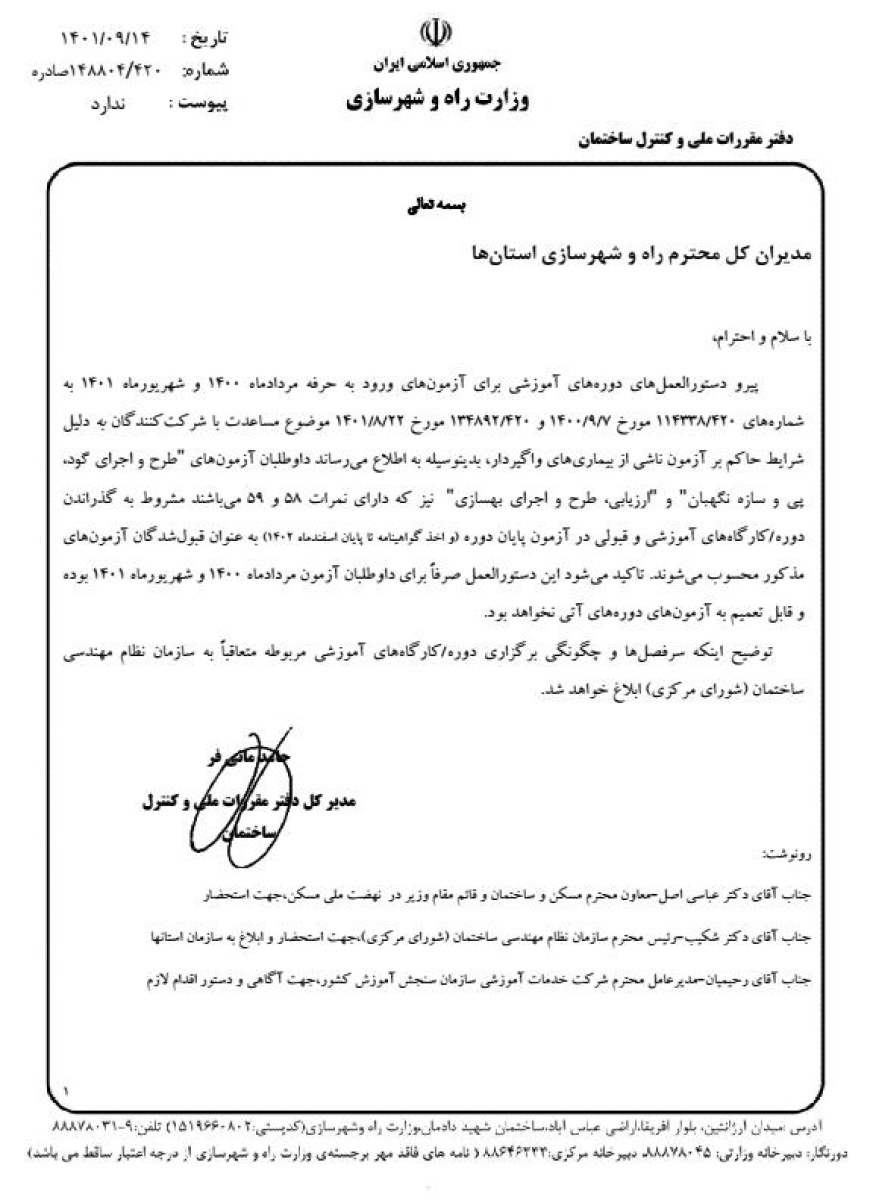 تاریخ : ۱۴۰۱/۰۹/۱۴
شماره: ۱۴۸۸۰۴/۴۲۰صادره
پیوست : ندارد
جمهوری اسلامی ایران
وزارت راه و شهرسازی
دفتر مقررات ملی و کنترل ساختمان
بسمه تعالی
مدیران کل محترم راه و شهرسازی استان‌ها
با سلام و احترام،
پیرو دستورالعمل‌های دوره‌های آموزشی برای آزمون‌های ورود به حرفه مردادماه ۱۴۰۰ و شهریورماه ۱۴۰۱ به
شماره‌های ۱۱۴۳۳۸/۴۲۰ مورخ ۱۴۰۰/۹/۷ و ۱۳۴۸۹۲/۴۲۰ مورخ ۱۴۰۱/۸/۲۲ موضوع مساعدت با شرکت‌کنندگان به دلیل
شرایط حاکم بر آزمون ناشی از بیماری‌های واگیردار، بدینوسیله به اطلاع می‌رساند داوطلبان آزمون‌های "طرح و اجرای گود،
پی و سازه نگهبان" و "ارزیابی، طرح و اجرای بهسازی" نیز که دارای نمرات ۵۸ و ۵۹ می‌باشند مشروط به گذراندن
دوره/کارگاه‌های آموزشی و قبولی در آزمون پایان دوره (و اخذ گواهینامه تا پایان اسفندماه ۱۴۰۲) به عنوان قبول‌شدگان آزمون‌های
مذکور محسوب می‌شوند. تاکید می‌شود این دستورالعمل صرفاً برای داوطلبان آزمون مردادماه ۱۴۰۰ و شهریورماه ۱۴۰۱ بوده
و قابل تعمیم به آزمون‌های دوره‌های آتی نخواهد بود.
توضیح اینکه سرفصل‌ها و چگونگی برگزاری دوره/کارگاه‌های آموزشی مربوطه متعاقباً به سازمان نظام مهندسی
ساختمان (شورای مرکزی) ابلاغ خواهد شد.
حامد مانی فر
مدیر کل دفتر مقررات ملی و کنترل
ساختمان
رونوشت:
جناب آقای دکتر عباسی اصل-معاون محترم مسکن و ساختمان و قائم مقام وزیر در نهضت ملی مسکن،جهت استحضار
جناب آقای دکتر شکیب-رئیس محترم سازمان نظام مهندسی ساختمان (شورای مرکزی)،جهت استحضار و ابلاغ به سازمان استانها
جناب آقای رحیمیان-مدیرعامل محترم شرکت خدمات آموزشی سازمان سنجش آموزش کشور،جهت آگاهی و دستور اقدام لازم
۱
آدرس :میدان آرژانتین، بلوار افریقا،اراضی عباس آباد،ساختمان شهید دادمان،وزارت راه وشهرسازی(کدپستی:۱۵۱۹۶۶۰۸۰۲) تلفن:۹-۸۸۸۷۸۰۳۱
دورنگار: دبیرخانه وزارتی: ۸۸۸۷۸۰۴۵، دبیرخانه مرکزی:۸۸۶۴۶۲۳۳ ( نامه های فاقد مهر برجسته‌ی وزارت راه و شهرسازی از درجه اعتبار ساقط می باشد)